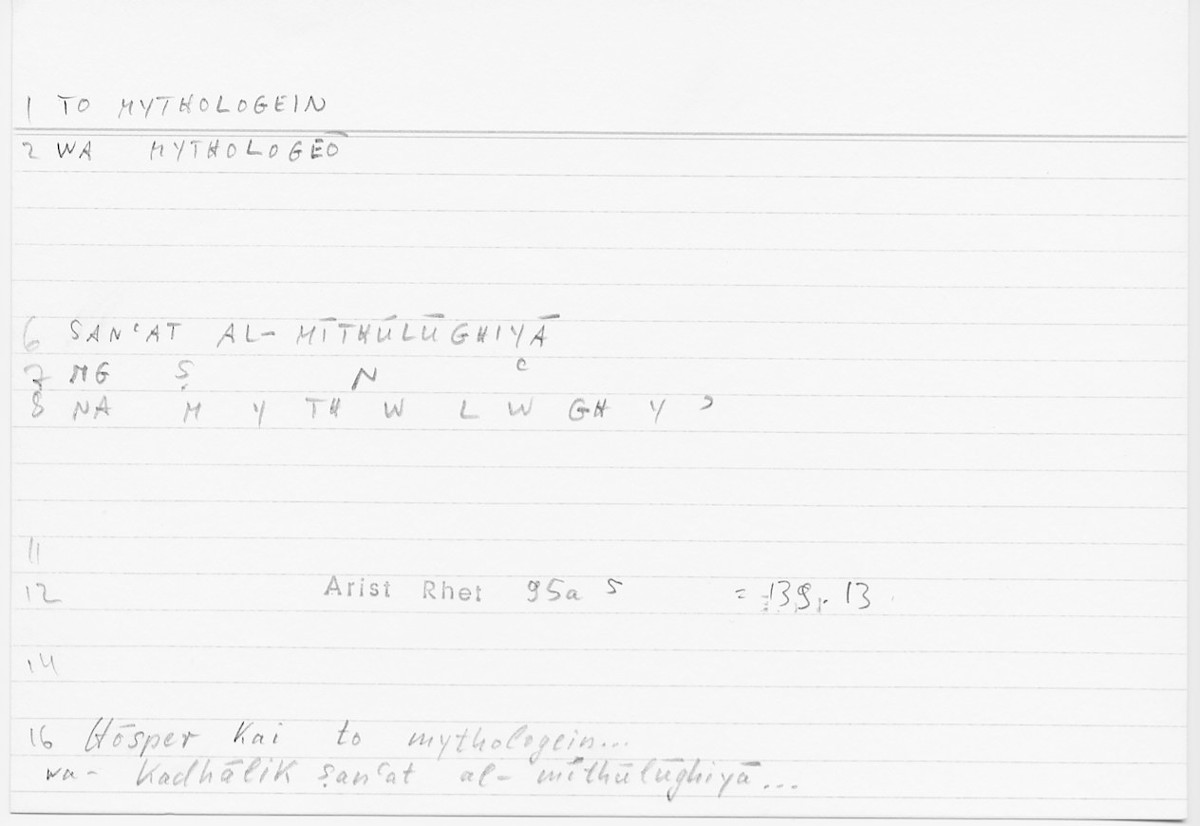 1 TO MYTHOLOGEIN
2 WA MYTHOLOGEŌ
6 SANʿAT AL-MĪTHŪLŪGHIYĀ
7 MG Ṣ N ʿ
8 NA M Y TH W L W GH Y ʾ
11
12 Arist Rhet 95a 5 = 139.13
14
16 Hōsper kai to mythologein...
wa- kadhālik ṣanʿat al- mīthūlūghiyā...